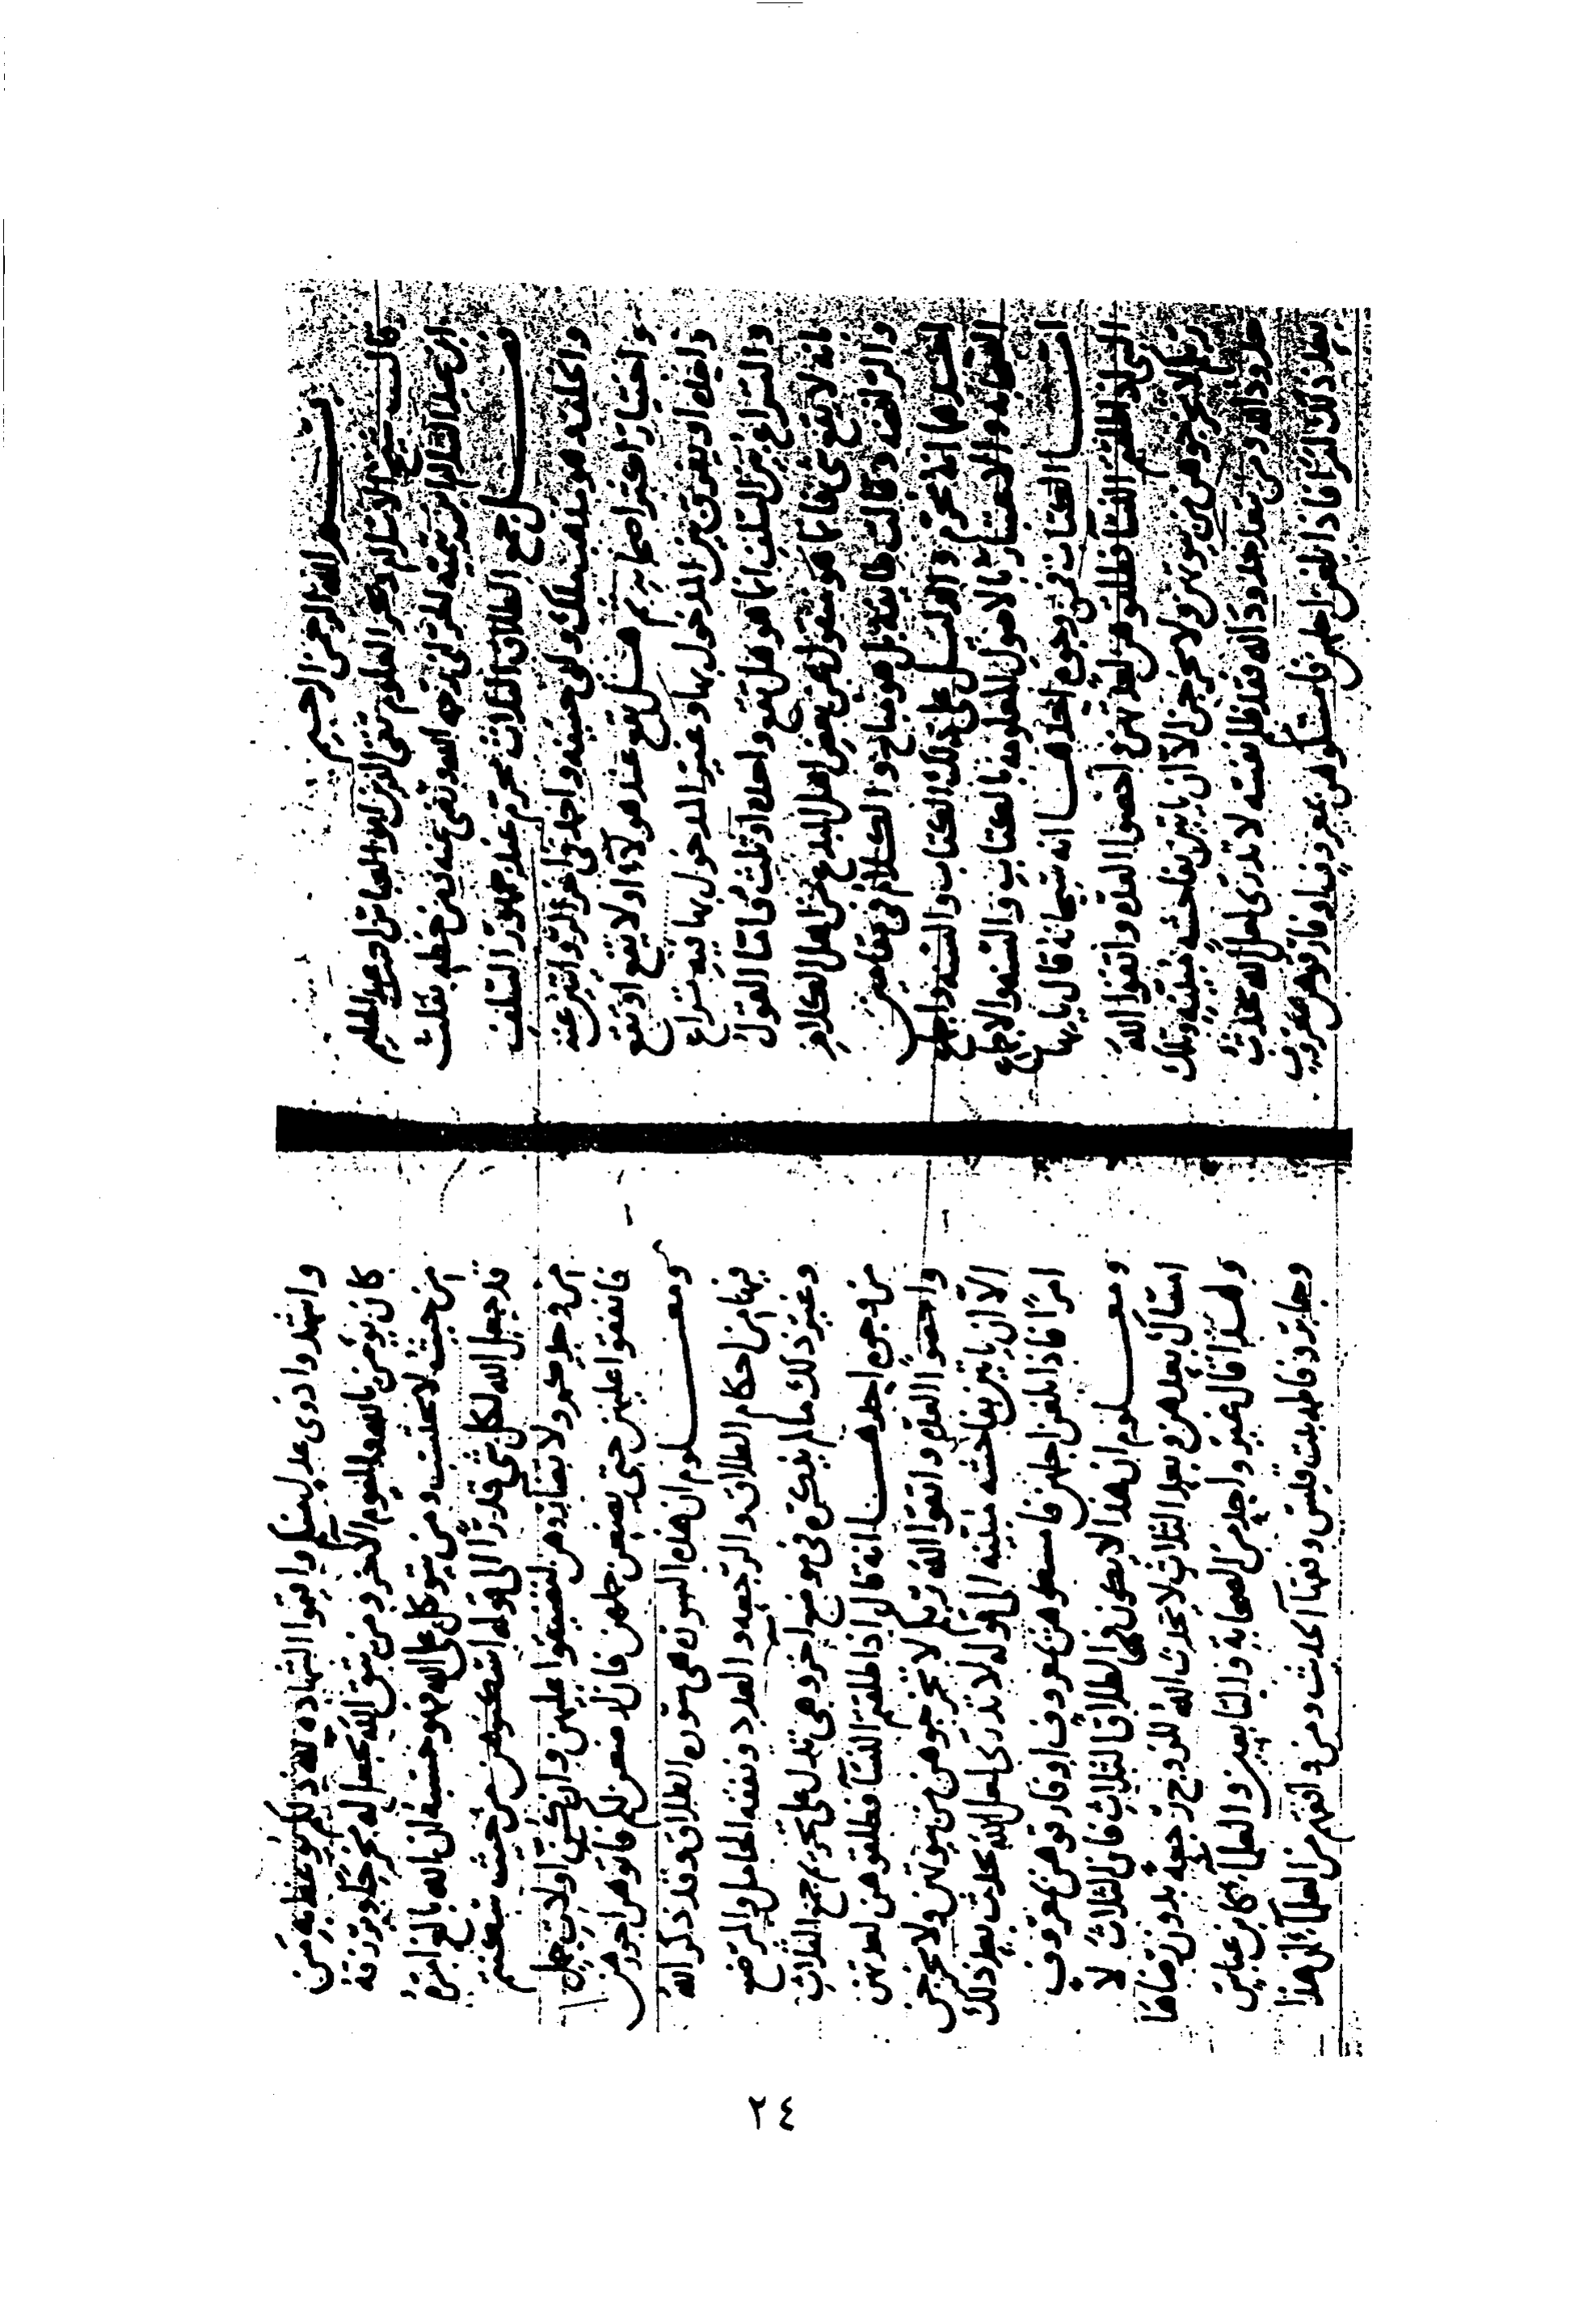 بسم الله الرحمن الرحيم
قال شيخ الاسلام وبحر العلوم تقي الدين ابو العباس احمد بن عبد الحليم
ابن عبد السلام ابن تيميه الحراني رحمه الله ورضي عنه من خطه نقلت
فصل جمع الطلاق الثلاث محرم عند جمهور السلف
والخلف وهو مذهب ملك وابي حنيفه واحمد في اخر الروايتين عنه
واختيار اكثر اصحابه ثم هل يقع عند هولاء او لا يقع او تقع
واحده او يفرق بين المدخول بها وغير المدخول بها فيه نزاع
والنزاع بين السلف انما هو هل تقع واحده او ثلث فاما القول
بانه لا يقع شي فانما هو منقول عن بعض اهل البدع من اهل الكلام
والرافضه وقالت طايفة بل هو مباح والكلام في مقامين
احدهما انه محرم والدليل على ذلك الكتاب والسنه واجماع
الصحابه والاعتبار بالاصول المعلومه بالكتاب والسنه والاجماع
اما الكتاب فمن وجوه احدها انه سبحانه قال يا ايها
النبي اذا طلقتم النسا فطلقوهن لعدتهن واحصوا العده واتقوا الله
ربكم لا تخرجوهن من بيوتهن ولا يخرجن الا ان ياتين بفاحشه مبينه وتلك
حدود الله ومن يتعد حدود الله فقد ظلم نفسه لا تدري لعل الله يحدث
بعد ذلك امرا فاذا بلغن اجلهن فامسكوهن بمعروف او فارقوهن بمعروف
واشهدوا ذوى عدل منكم واقيموا الشهاده لله ذلكم يوعظ به من
كان يؤمن بالله واليوم الاخر ومن يتق الله يجعل له مخرجا ويرزقه
من حيث لا يحتسب ومن يتوكل على الله فهو حسبه ان الله بالغ امره
قد جعل الله لكل شي قدرا الى قوله اسكنوهن من حيث سكنتم
من وجدكم ولا تضاروهن لتضيقوا عليهن وان كن اولات حمل
فانفقوا عليهن حتى يضعن حملهن فان ارضعن لكم فاتوهن اجورهن
ومعلوم ان هذه السوره هي سوره الطلاق وقد ذكر الله
فيها من احكام الطلاق والرجعه والعدد ونفقه الحامل والمرضع
وغير ذلك مالم يذكره في موضع اخر وهي تدل على تحريم جمع الثلاث
من وجوه احدها انه قال اذا طلقتم النسآ فطلقوهن لعدتهن
واحصوا العده واتقوا الله ربكم لا تخرجوهن من بيوتهن ولا يخرجن
الا ان ياتين بفاحشه مبينه الى قوله لا تدري لعل الله يحدث بعد ذلك
امرا فاذا بلغن اجلهن فامسكوهن بمعروف او فارقوهن بمعروف
ومعلوم ان هذا لا يكون في الطلاق الثلاث فان الثلاث لا
امساك بعدهن وبعد الثلاث لا يحدث الله للزوج رجعة بدون رضاها
ولهذا قال غير واحد من الصحابة والتابعين والعلمآء كابن عباس
وجابر وفاطمه بنت قيس وفقهآ الحديث ومن وافقهم من العلمآ ان هذا
٢٤